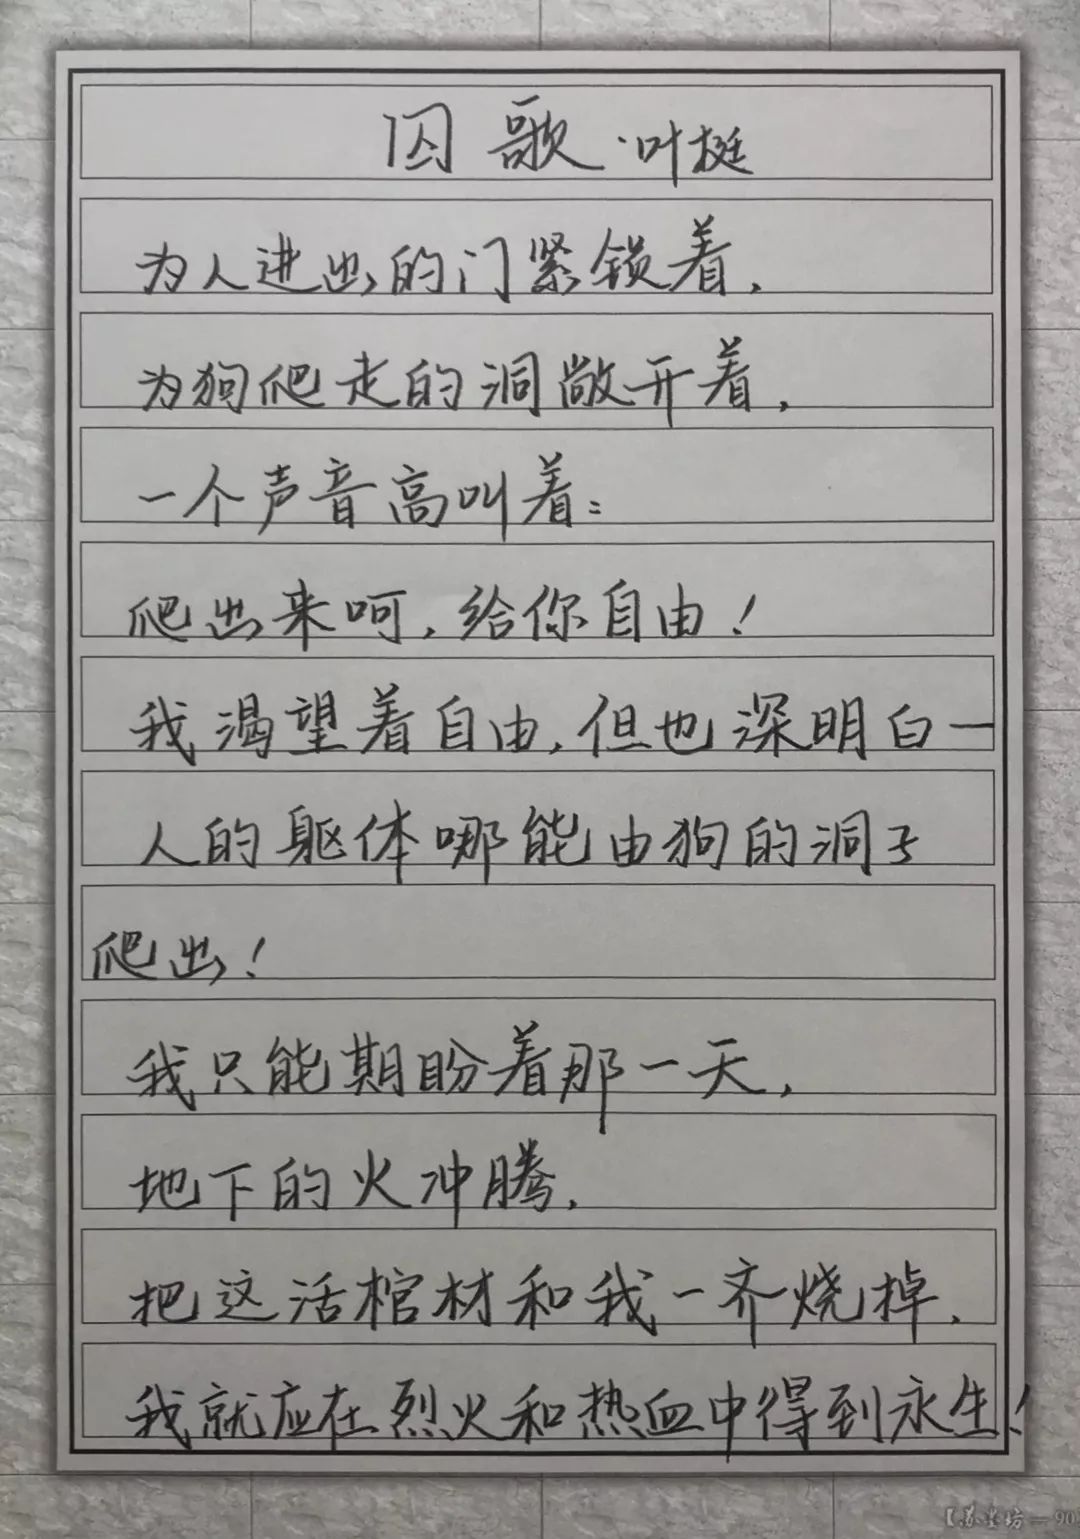 囚歌·叶挺
为人进出的门紧锁着，
为狗爬走的洞敞开着，
一个声音高叫着：
爬出来呵，给你自由！
我渴望着自由，但也深明白一
人的躯体哪能由狗的洞子
爬出！
我只能期盼着那一天，
地下的火冲腾，
把这活棺材和我一齐烧掉，
我就应在烈火和热血中得到永生！